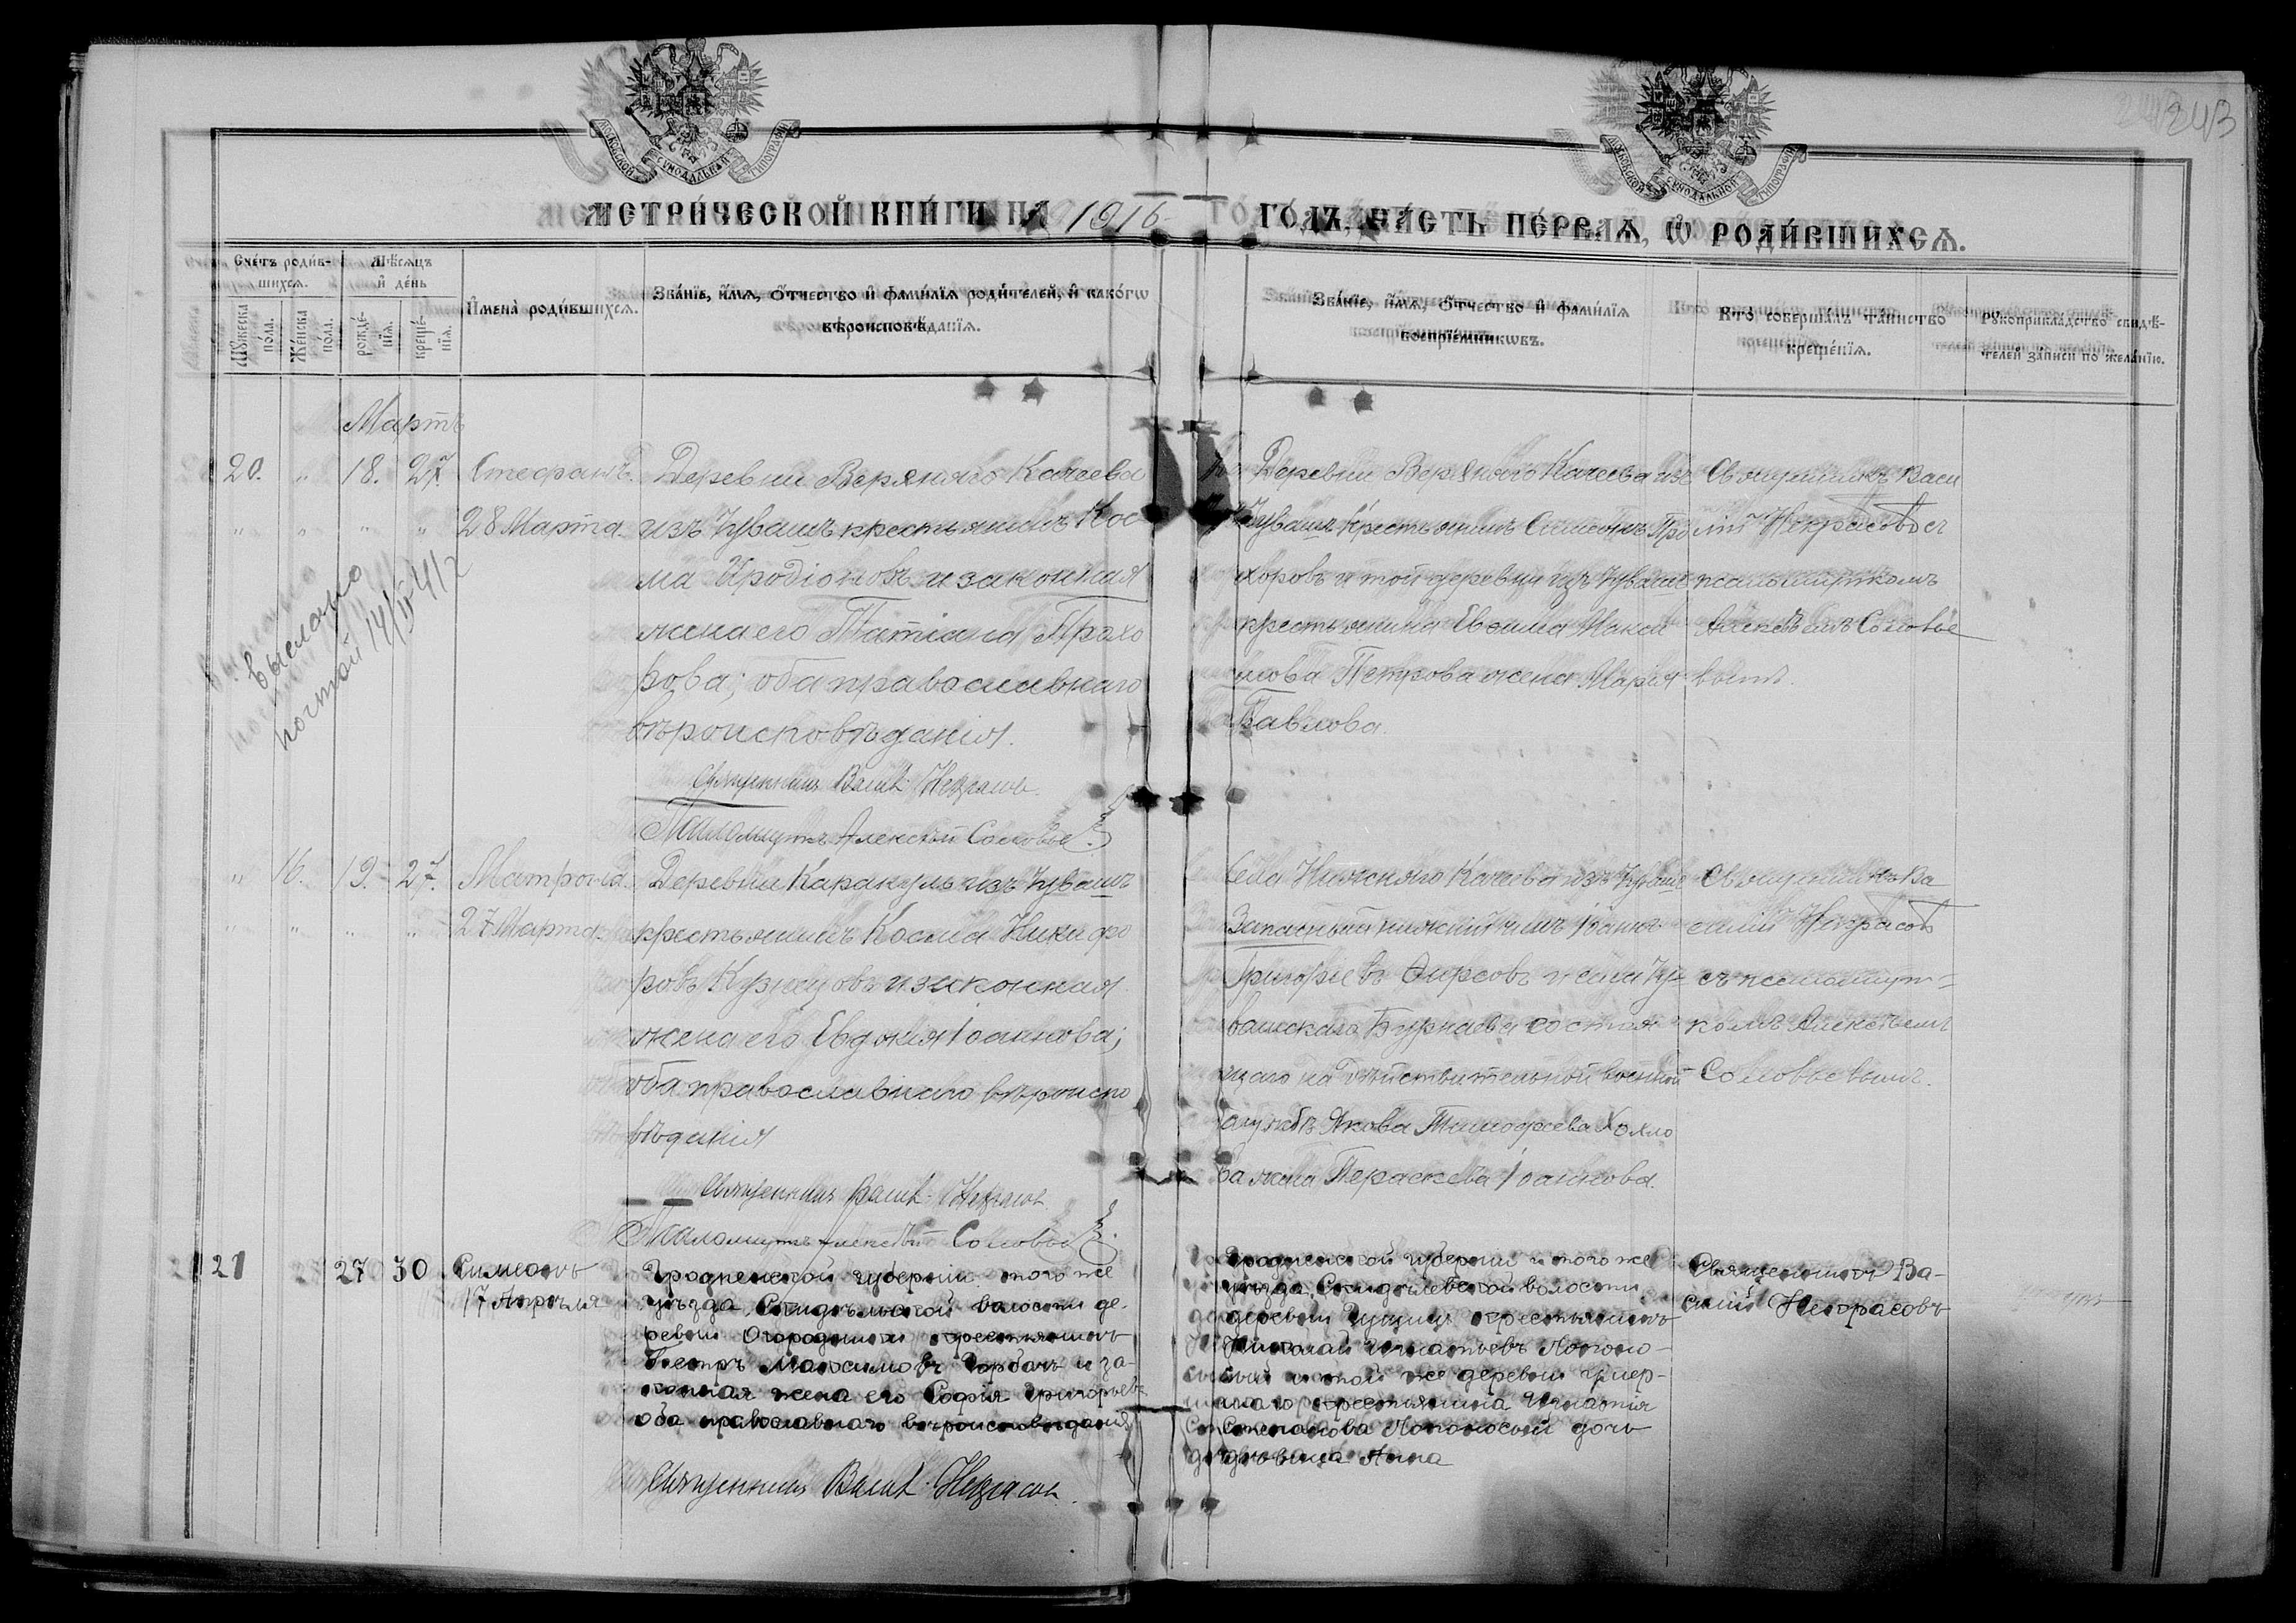 243
МОСКОВСКОЙ СѴНОДАЛЬНОЙ ТИПОГРАФІИ
МОСКОВСКОЙ СѴНОДАЛЬНОЙ ТИПОГРАФІИ
МЕТРИ́ЧЕСКОЙ КНИ́ГИ НА 1916 ГО́ДЪ, ЧА́СТЬ ПЕ́РВАѦ, Ѡ РОДИ́ВШИХСѦ.
Сче́тъ роди́в-
шихсѧ.
Мꙋ́жеска
по́ла.
Же́нска
по́ла.
Мѣ́сѧцъ
и҆ де́нь
рожде́-
нїѧ.
креще́-
нїѧ.
И҆мена̀ роди́вшихсѧ.
Зва́нїе, и҆́мѧ, ѻ҆́тчество и҆ фамі́лїѧ роди́телей, и҆ како́гѡ
вѣроисповѣ́данїѧ.
Зва́нїе, и҆́мѧ, ѻ҆́тчество и҆ фамі́лїѧ
воспрїе́мникѡвъ.
Кто̀ соверша́лъ та́инство
креще́нїѧ.
Рꙋкоприкла́дство свидѣ́-
телей за́писи по жела́нїю.
Мартъ
20. " 18. 27. Стефанъ.
" " " " 28 Марта.
выслано
почтой 14/II 41 г
Деревни Верхняго Качеева
изъ Чувашъ крестьянинъ Кос-
ма Иродіоновъ и законная
жена его Татіана Прохо
рова; оба православнаго
вѣроисповѣданія.
Священникъ Васил. Некрасовъ.
Псаломщикъ Алексѣй Соловьев.
Деревни Верхняго Качеева изъ
Чувашъ крестьянинъ Симеонъ Про
хоровъ и той деревни изъ Чувашъ
крестьянина Евѳима Макси
мова Петрова жена Марія
Павлова.
Священникъ Васи
лій Некрасовъ съ
псаломщикомъ
Алексѣемъ Соловье
вымъ.
" 16. 19. 27. Матрона.
" " " " 27 Марта.
Деревни Каракуль изъ Чувашъ
крестьянинъ Косма Никифо
ровъ Кузнецовъ и законная
жена его Евдокія Іоаннова;
оба православнаго вѣроиспо
вѣданія
Священникъ Васил. Некрасовъ.
Псаломщикъ Алексѣй Соловьев.
Села Нижняго Качеева изъ Чувашъ
Запасный нижній чинъ Іоаннъ
Григорьевъ Ѳирсовъ и села Чу-
вашскаго Бурнаева состоя
щаго на дѣйствительной военной
службѣ Якова Тимофеева Хохло
ва жена Параскева Іоаннова.
Священникъ Ва
силій Некрасовъ
съ псаломщи=
комъ Алексѣемъ
Соловьевымъ.
21 27 30 Симеонъ
17 Апрѣля
Гродненской губерніи того же
уѣзда, Скидѣльской волости де-
ревни Огородники крестьянинъ
Петръ Максимовъ Горбачъ и за-
конная жена его Софія Григорьев.
оба православнаго вѣроисповѣданія
Священникъ Васил. Некрасовъ.
Гродненской губерніи и того же
уѣзда, Скидѣлевской волости
деревни крестьянинъ
Николай Игнатьевъ
и той же деревни умер-
шаго крестьянина Игнатія
Степанова дочь
дѣвица Анна
Священникъ Ва-
силій Некрасовъ